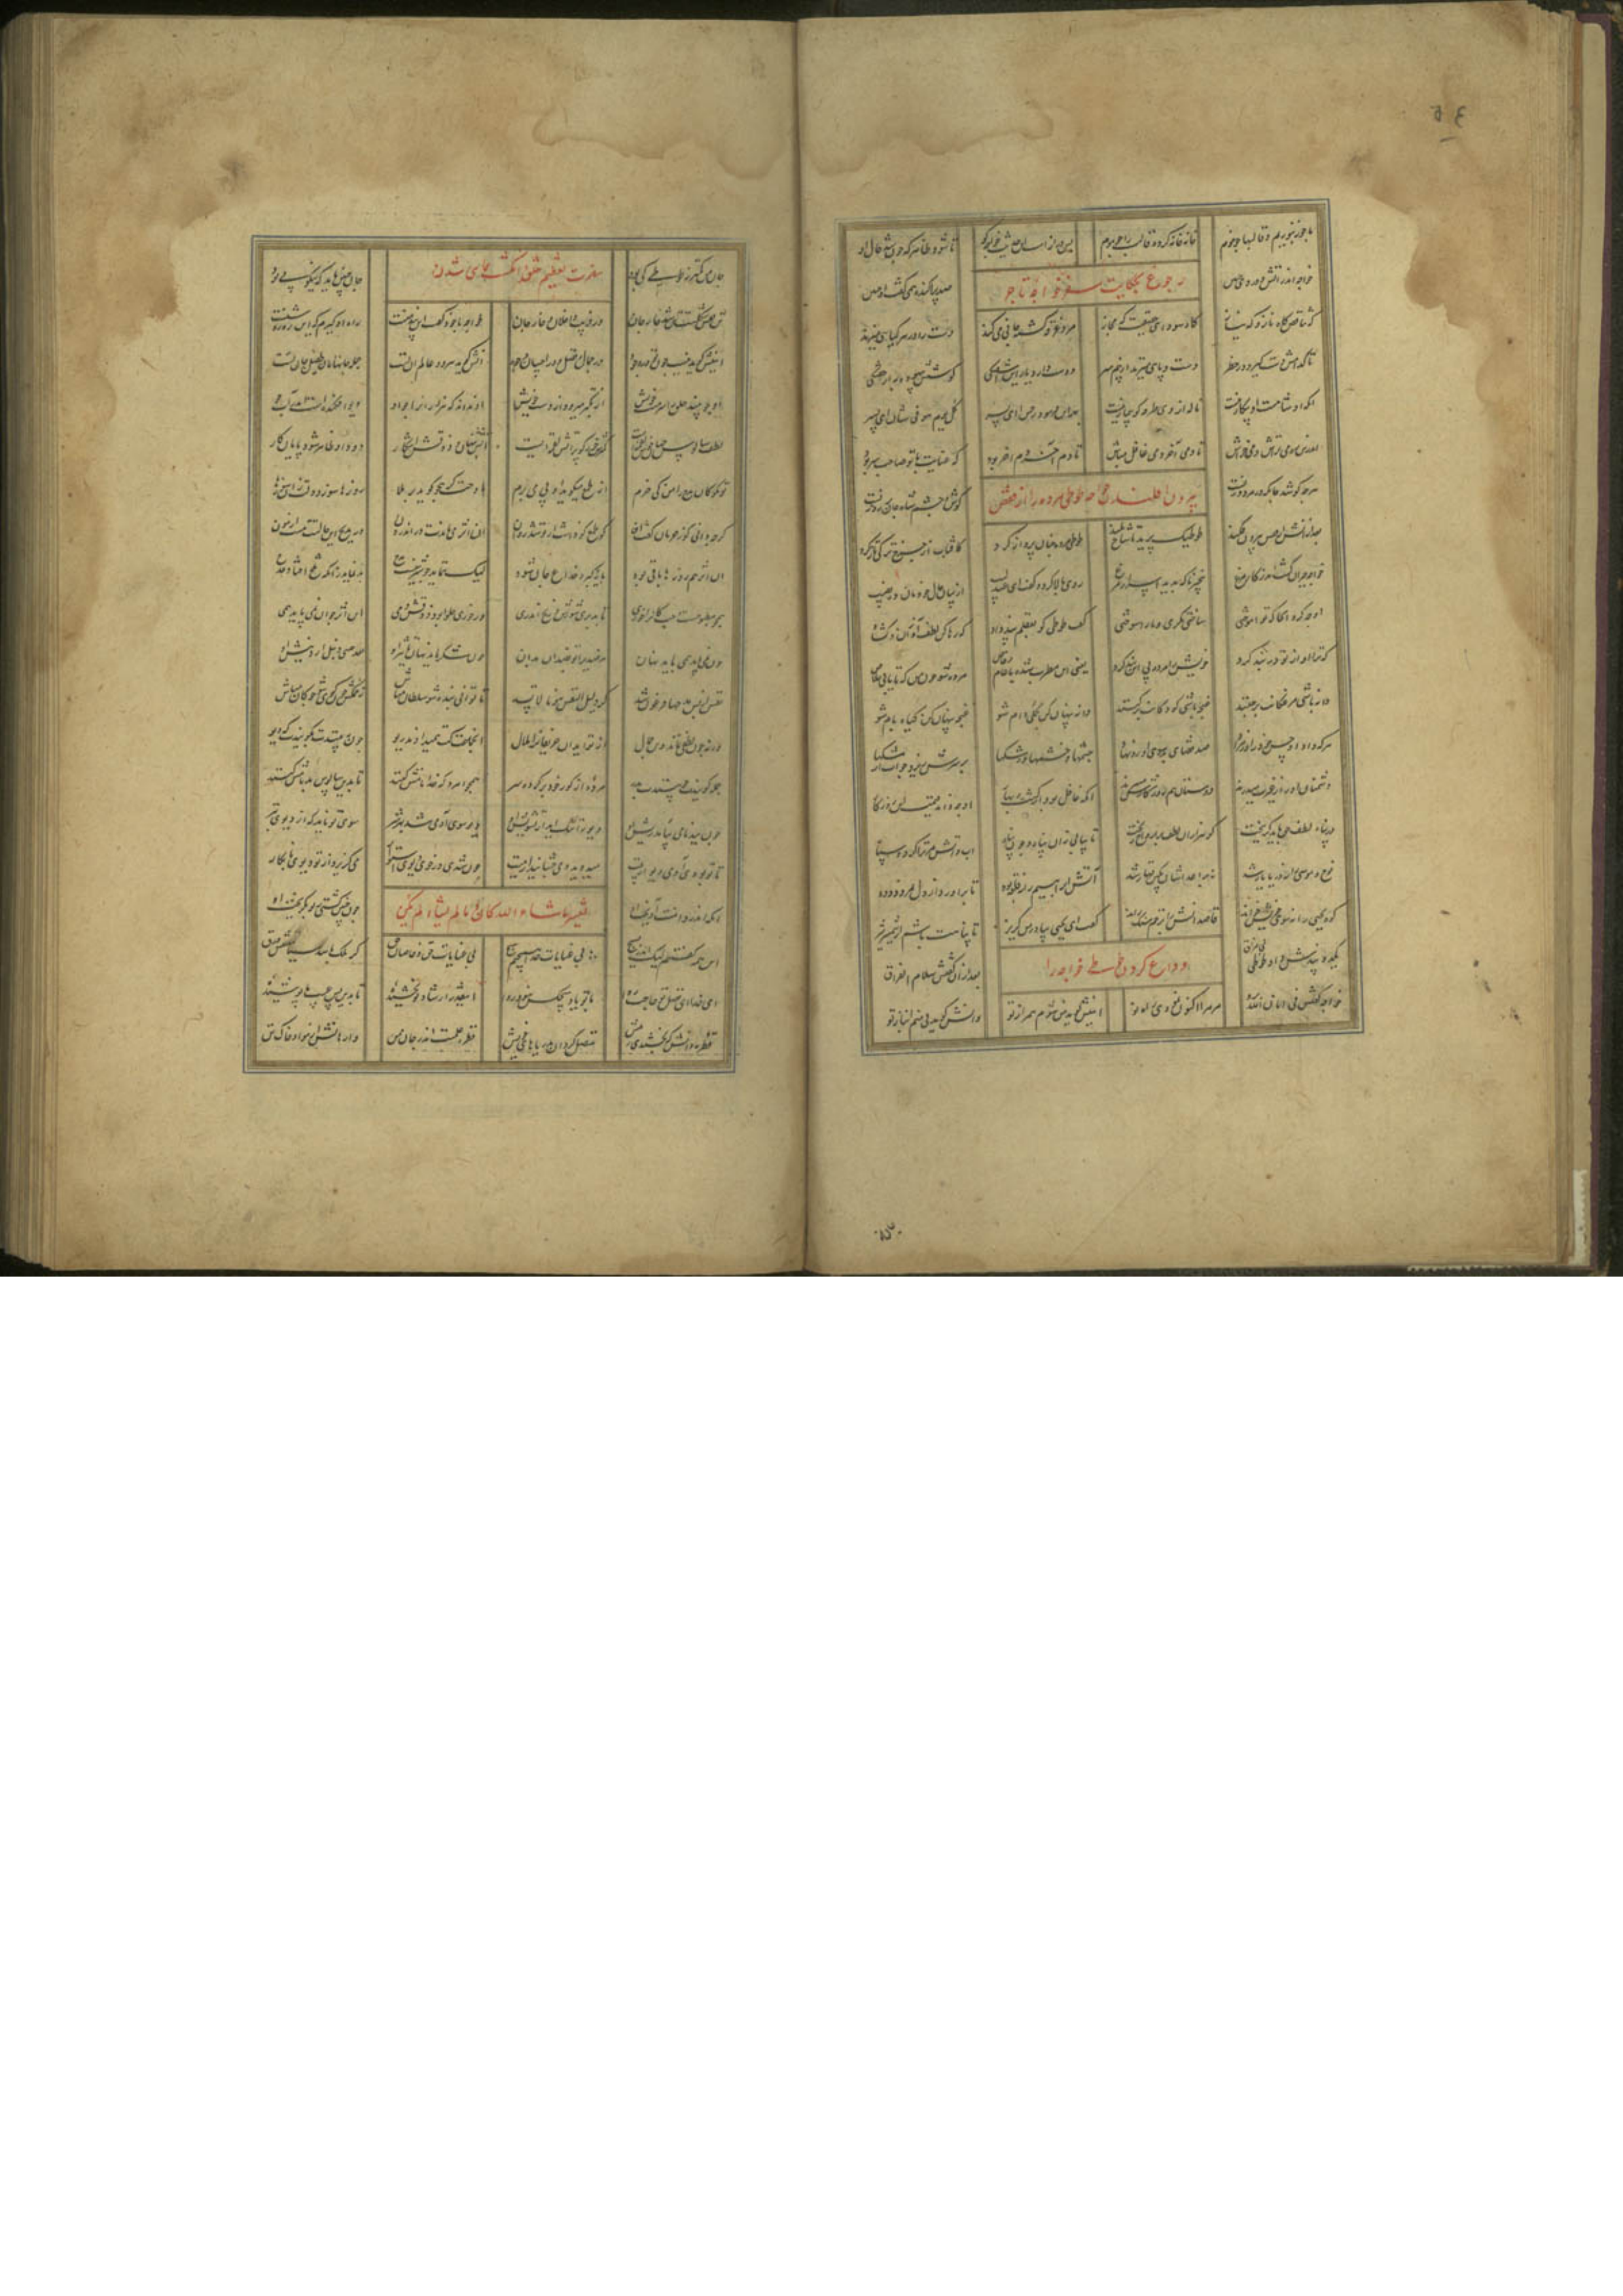 ما چو زنبوریم و قالبها چو موم خانه خانه کرده قالب را چو موم بس دراز است این حدیث خواجه گو تا شود ظاهر که چون شد حال او
خواجه اندر آتش و درد و حنین رجوع بحکایت سفر خواجه تاجر صد پراکنده همی گفت این چنین
که تناقض گاه ناز و گه نیاز گاه سودای حقیقت گه مجاز مرد غرقه گشته جانی می کند دست را در هر گیاهی میزند
تا کدامش دست گیرد در خطر دست و پای میزند از بیم سر دوست دارد یار این آشفتگی کوشش بیهوده به از خفتگی
انکه او شاهست او بیکار نیست ناله از وی طرفه کو بیمار نیست بهر این فرمود رحمن ای پسر کل یوم هو فی شان ای پسر
اندرین ره می تراش و می خراش تا دمی آخر دمی غافل مباش تا دم آخر دمی آخر بود که عنایت با تو صاحب سر بود
هرچه کوشد جان که در مرد و زنست بیرون افکندن خواجه طوطی مرده را از قفس گوش و چشم شاه جان بر روزنست
بعد از آنش از قفس بیرون فکند طوطیک پرید تا شاخ بلند طوطی مرده چنان پرواز کرد کافتاب از چرخ ترکی تاز کرد
خواجه حیران گشت اندر کار مرغ بیخبر ناگه بدید اسرار مرغ روی بالا کرد و گفت ای عندلیب از بیان حال خودمان ده نصیب
او چه کرد آنجا که تو آموختی ساختی مکری و ما را سوختی گفت طوطی کو بفعلم پند داد که رها کن لطف آواز و گشاد
آواز تو در بند کرد خویشتن مرده پی این پند کرد یعنی ای مطرب شده با عام و خاص مرده شو چون من که تا یابی خلاص
دانه باشی مرغکانت برچنند غنچه باشی کودکانت برکنند دانه پنهان کن بکلی دام شو غنچه پنهان کن گیاه بام شو
هرکه داد او حسن خود را در مزاد صد قضای بد سوی او رو نهاد چشمها و خشمها و رشکها بر سرش ریزد چو آب از مشکها
دشمنان او را ز غیرت میدرند دوستان هم روزگارش میبرند انکه غافل بود از کشت و بهار او چه داند قیمت این روزگار
در پناه لطف حق باید گریخت کو هزاران لطف بر ارواح ریخت تا پناهی یابی آن پناه آب و آتش مر ترا گردد سپاه
نوح و موسی را نه دریا یار شد نه بر اعداشان بکین قهار شد آتش ابراهیم را نه قلعه بود تا برآورد از دل نمرود دود
کوه یحیی را نه سوی خویش خواند قاصدانش را بزخم سنگ راند گفت ای یحیی بیا در من گریز تا پناهت باشم از شمشیر تیز
یک دو پندش داد طوطی وداع کردن طوطی خواجه را بعد از آن گفتش سلام الفراق
خواجه گفتش فی امان الله برو مر مرا اکنون نمودی راه نو اینش گوید من شوم همراز تو وانش گوید نی منم انباز تو
جان من کمتر ز طوطی کی بود مضرت تعظیم خلق و انگشت نمای شدن جان چنین باید که نیکو پی بود
تن قفس شکلست تن شد خار جان در فریب داخلان و خارجان خواجه با خود گفت این پند منست راه او گیرم که این ره روشنست
اینش گوید نیست چون تو در وجود در جمال و فضل و در احسان و جود آنش گوید هر دو عالم آن تست جمله جانهامان طفیل جان تست
او چو بیند خلق را سرمست خویش از تکبر میرود از دست خویش او نداند که هزاران را چو او دیو افکندست اندر آب جو
لطف و سالوس جهان خوش لقمه ایست کمترش خور کو پر آتش لقمه ایست آتشش پنهان و ذوقش آشکار دود او ظاهر شود پایان کار
تو مگو کان مدح را من کی خرم از طمع میگوید او پی می برم مادحت گر هجو گوید بر ملا روزها سوزد دلت زان سوزها
گرچه دانی کو ز حرمان گفت آن کان طمع که داشت از تو شد زیان آن اثر می ماندت در اندرون در مدیح این حالتت هست آزمون
آن اثر هم روزها باقی بود مایه کبر و خداع جان شود لیک ننماید چو شیرینست مدح بد نماید زانکه تلخ افتاد قدح
همچو مطبوخست و حب کانرا خوری تا بدیری شورش و رنج اندری ور خوری حلوا بود ذوقش دمی این اثر چون آن نمی پاید همی
چون نمی پاید همی پاید نهان هر ضدی را تو بضد آن بدان چون شکر پاید نهان تاثیر او بعد حینی دمل آرد نیش جو
نفس از بس مدحها فرعون شد کن ذلیل النفس هونا لا تسد تا توانی بنده شو سلطان مباش زخم کش چون گوی شو چوگان مباش
ورنه چون لطفت نماند وین جمال از تو آید آن حریفان را ملال آن جماعت کت همی دادند ریو چون ببینندت بگویندت که دیو
جمله گویندت چو بینندت بدر مرده از گور خود بر کرد سر همچو امرد که خدا نامش کنند تا بدین سالوس بدنامش کنند
چون ببدنامی بر آمد ریش او دیو را ننگ آید از تفتیش او دیو سوی آدمی شد بهر شر سوی تو ناید که از دیوی بتر
تا تو بودی آدمی دیو از پیت میدوید و می چشانید از میت چون شدی در خوی دیوی استوار می گریزد از تو دیو نابکار
آنکه اندر دامنت آویخت او تفسیر ما شاء الله کان و ما لم یشاء لم یکن چون چنین گشتی ز تو بگریخت او
این همه گفتیم لیک اندر بسیچ بی عنایات خدا هیچیم هیچ بی عنایات حق و خاصان حق گر ملک باشد سیاهستش ورق
ای خدا ای فضل تو حاجت روا با تو یاد هیچکس نبود روا اینقدر ارشاد تو بخشیده تا بدین بس عیب ما پوشیده
قطره دانش که بخشیدی ز پیش متصل گردان بدریاهای خویش قطره علمست اندر جان من وارهانش از هوا وز خاک تن